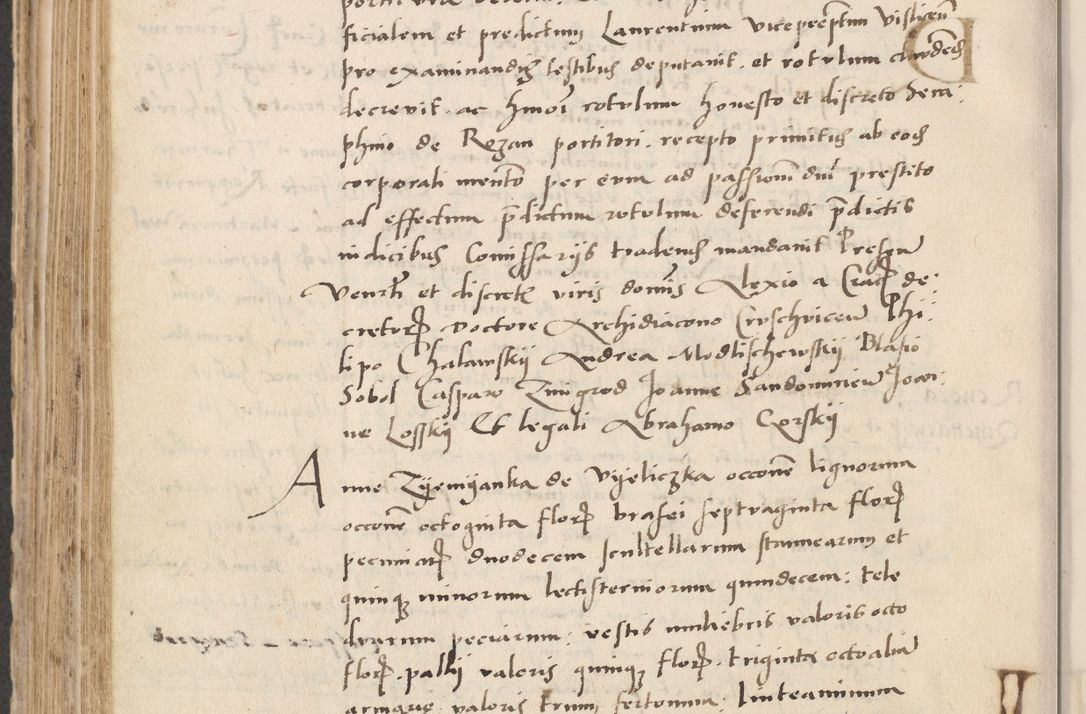 ficialem et predictum Laurentium viceprēptum Vislicen̄
pro examinandis testibus deputavit. et rotulum claudend
decrevit. ac hmōi rotulum honesto et discreto Sera:
phino de Rozan portitori. recepto primitus ab eod
corporali iuramento per eum ad passionē dnī prestito
ad effectum p̄dictum rotulum deferendi p̄dictis
iudicibus Comissarÿs tradend mandavit Presen
Venrli et discretis viris dominis Alexio a Crac de:
cretorum Doctore Archidiacono Cruschvicen Phi:
lipo Chalawskÿ Andrea Modlischewskÿ Blasio
Sobol Caspare Zmigrod Joanne Sandomirien Joan:
ne Losskÿ Et legali Abrahamo Gorskÿ
Anne Zÿemÿanka de Vÿeliczka occōne lignorum
occōne octoginta flor brasei septuaginta flor
pecuniar duodecem scultellarum stannearum et
quinq minorum lectisterniorum quindecem: tele
duarum peciarum: vestis muliebris valoris octo
flor. pallÿ valoris quinq flor. triginta octo aliā
valoris trium fertonum: linteaminum